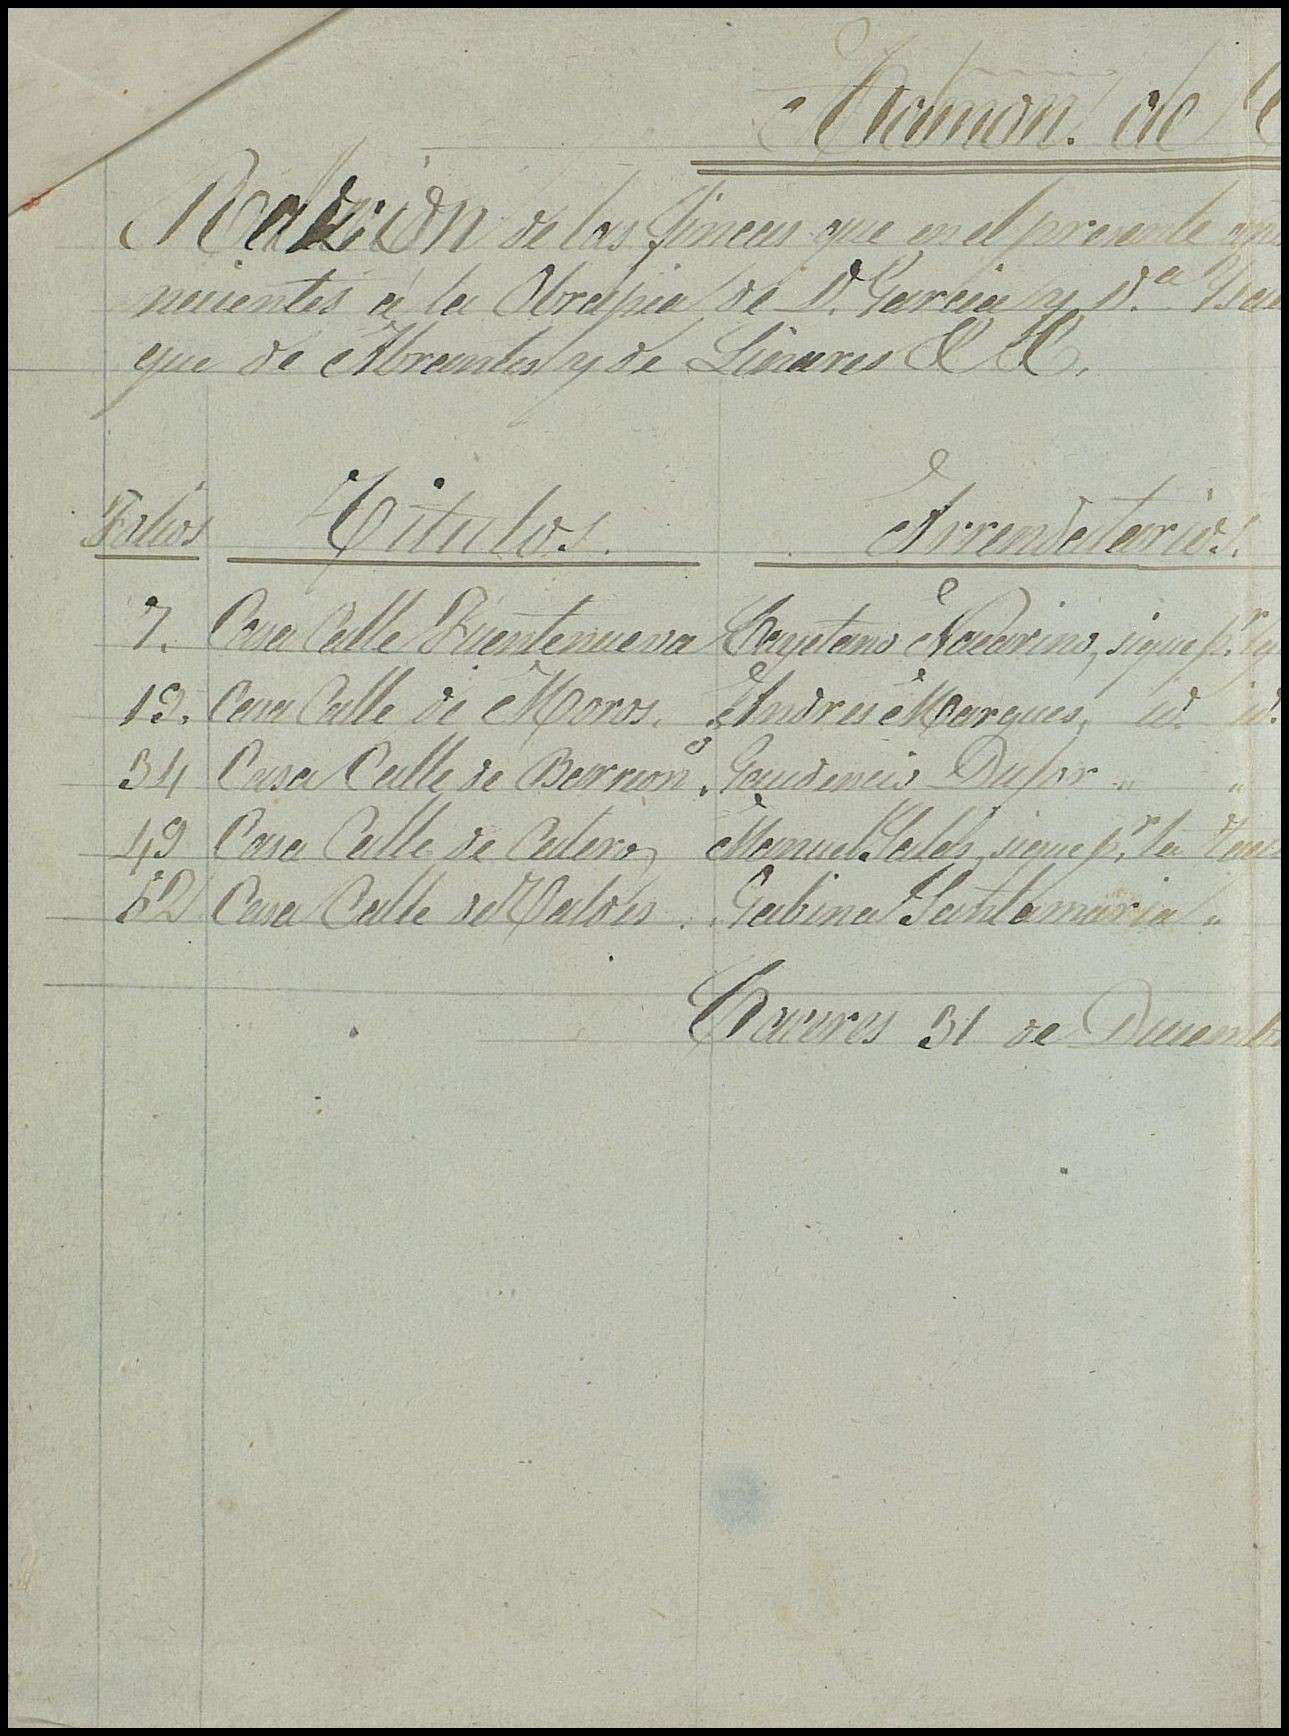 Admon. de
Relacion de las fincas que en el presente
necientes á la Obrapia de D. Garcia y D.ª
que de Abrantes y de Linares &. &.
Folios Titulos. Arrendatarios.
7. Casa Calle Fuentenueva Cayetano sigue p.r
19. Casa Calle de Moros. Andres Marques, id. id.
34 Casa Calle de Barrion.o Gaudencio "
49 Casa Calle de Calero Manuel sigue p.r la
52 Casa Calle de Gabina Santamaria "
Caceres 31 de Diciemb